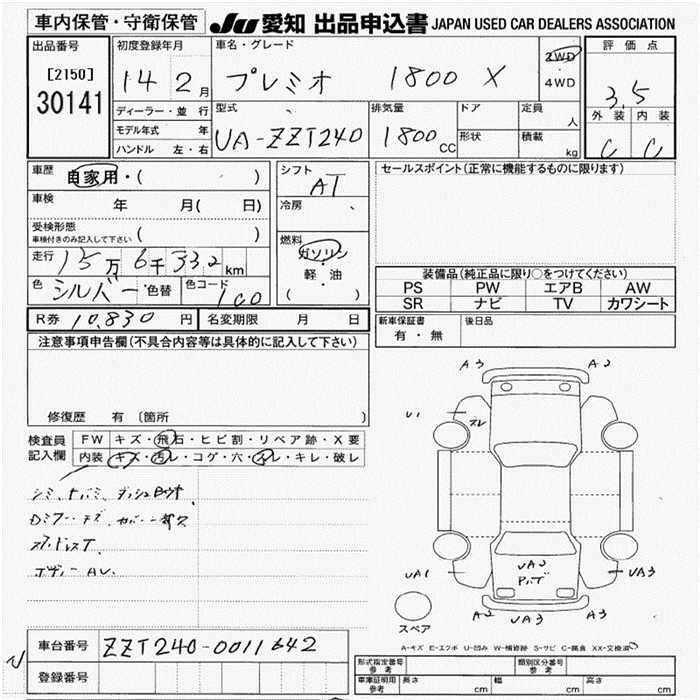 車内保管・守衛保管 JU 愛知 出品申込書 JAPAN USED CAR DEALERS ASSOCIATION
出品番号 初度登録年月 車名・グレード 評価点
[2150] 14 2月 プレミオ 1800 X 2WD・4WD 3.5
30141 ディーラー・並行 型式 排気量 ドア 定員 人 外装 内装
モデル年式 年 UA-ZZT240 1800cc 形状 積載 kg C C
ハンドル 左・右
車歴 自家用・( ) シフト AT セールスポイント(正常に機能するものに限ります)
車検 年 月( 日) 冷房
受検形態 ( )
車検付きのみ記入して下さい
走行 15万6千332km 燃料 ガソリン・軽・油 ( )
色 シルバー 色替 色コード 1C0
装備品(純正品に限り○をつけてください)
PS PW エアB AW
SR ナビ TV カワシート
R券 10,830円 名変期限 月 日 新車保証書 有・無 後日品
注意事項申告欄(不具合内容等は具体的に記入して下さい)
修復歴 有 〔箇所
検査員記入欄 FW キズ・飛石・ヒビ割・リペア跡・X要
内装 キズ・汚レ・コゲ・穴・スレ・キレ・破レ
A3 A2
U1 スレ
UA2
UA1 UA3
A2 UA3 A3
スペア
A-キズ E-エクボ U-凹み W-補修跡 S-サビ C-腐食 XX-交換済
車台番号 ZZT240-0011642
登録番号
型式指定番号 参考 類別区分番号 参考
車庫証明用 参考 長さ cm 幅 cm 高さ cm